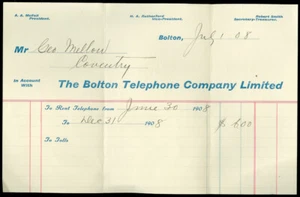 S. A. Moffatt
President.
W. A. Rutherford
Vice-President.
Robert Smith
Secretary-Treasurer.
Bolton, July 1 08
Mr Geo Mellow
Coventry
In Account
With
The Bolton Telephone Company Limited
To Rent Telephone from June 30 1908
To Dec 31 1908 $ 6.00
To Tolls